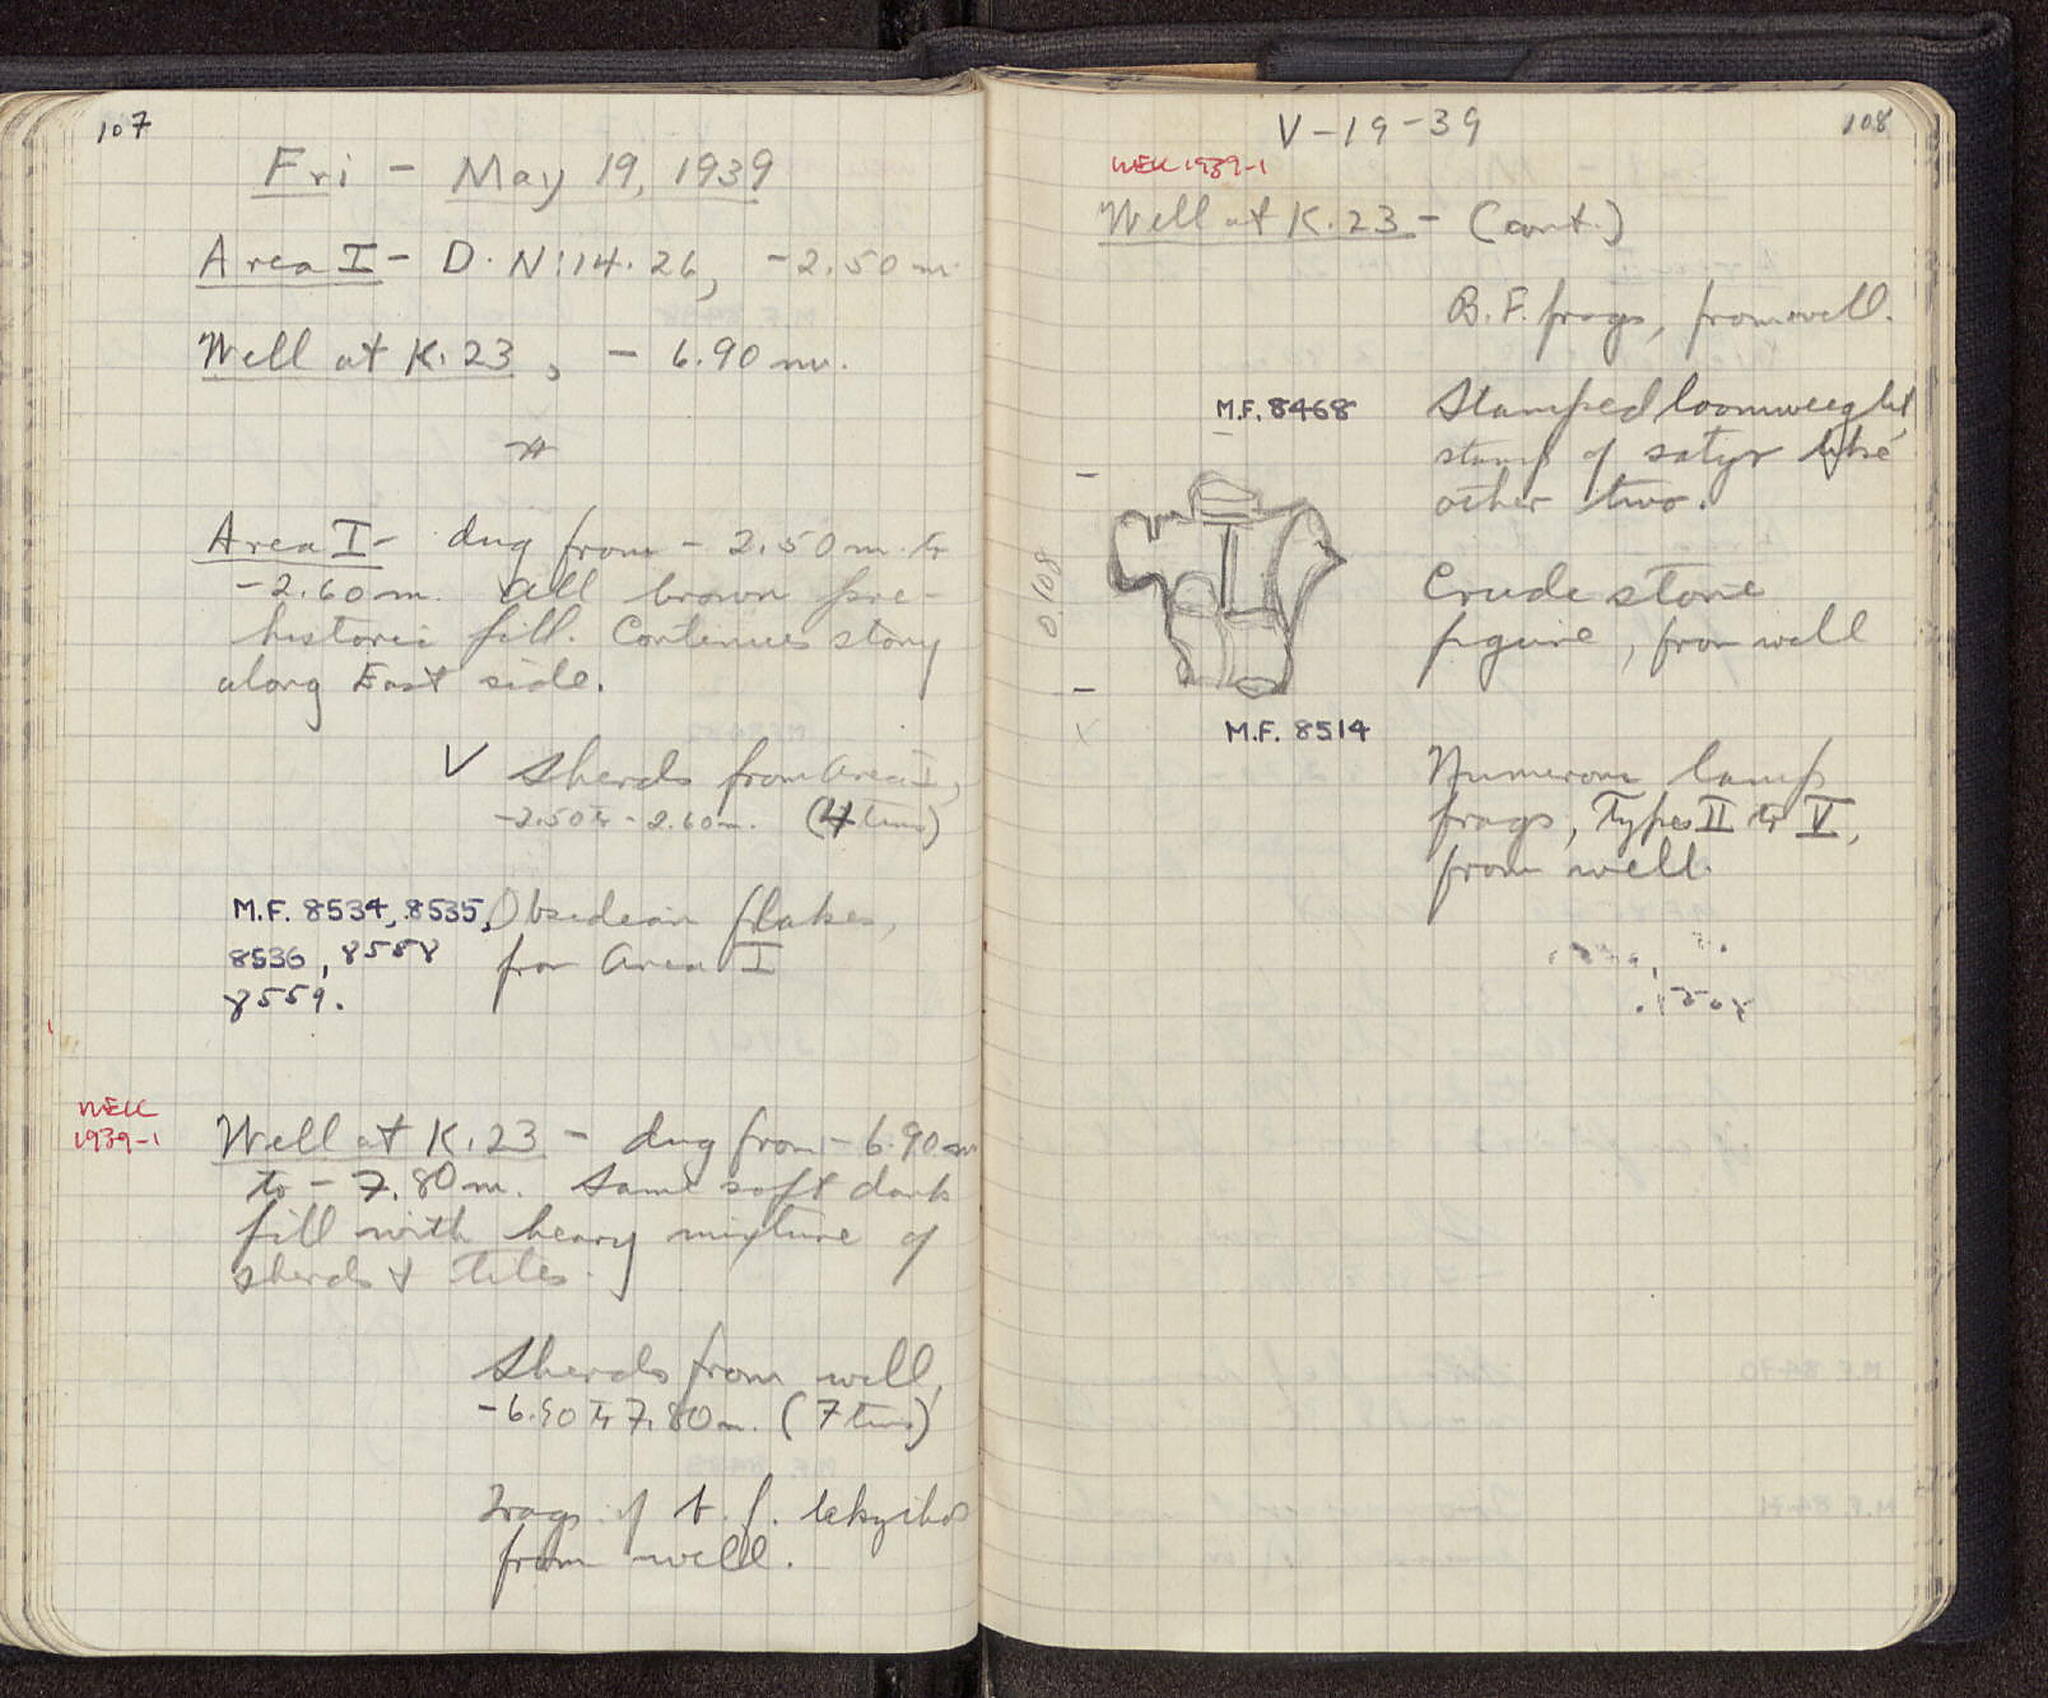 107
Fri - May 19, 1939
Area I - D. N:14.26, -2.50 m.
Well at K.23, - 6.90 m.
Area I - dug from - 2.50 m. to
-2.60 m. All brown pre-
historic fill. Continues story
along East side.
V Sherds from Area I,
-2.50 to -2.60 m. (4 tins)
M.F. 8534, 8535, Obsidian flakes,
8536, 8558 from Area I
8559.
WELL
1939-1
Well at K.23 - dug from - 6.90 m
to - 7.80 m. Same soft dark
fill with heavy mixture of
sherds & tiles.
Sherds from well,
-6.90 to 7.80 m. (7 tins)
Frags of b.f. lekythos
from well.
108
V-19-39
WELL 1939-1
Well at K.23 - (cont.)
B.F. frags, from well.
M.F. 8468 Stamped loomweight,
stamp of satyr like
other two.
0.108
Crude stone
figure, from well
M.F. 8514
Numerous lamp
frags, Types II to V,
from well.